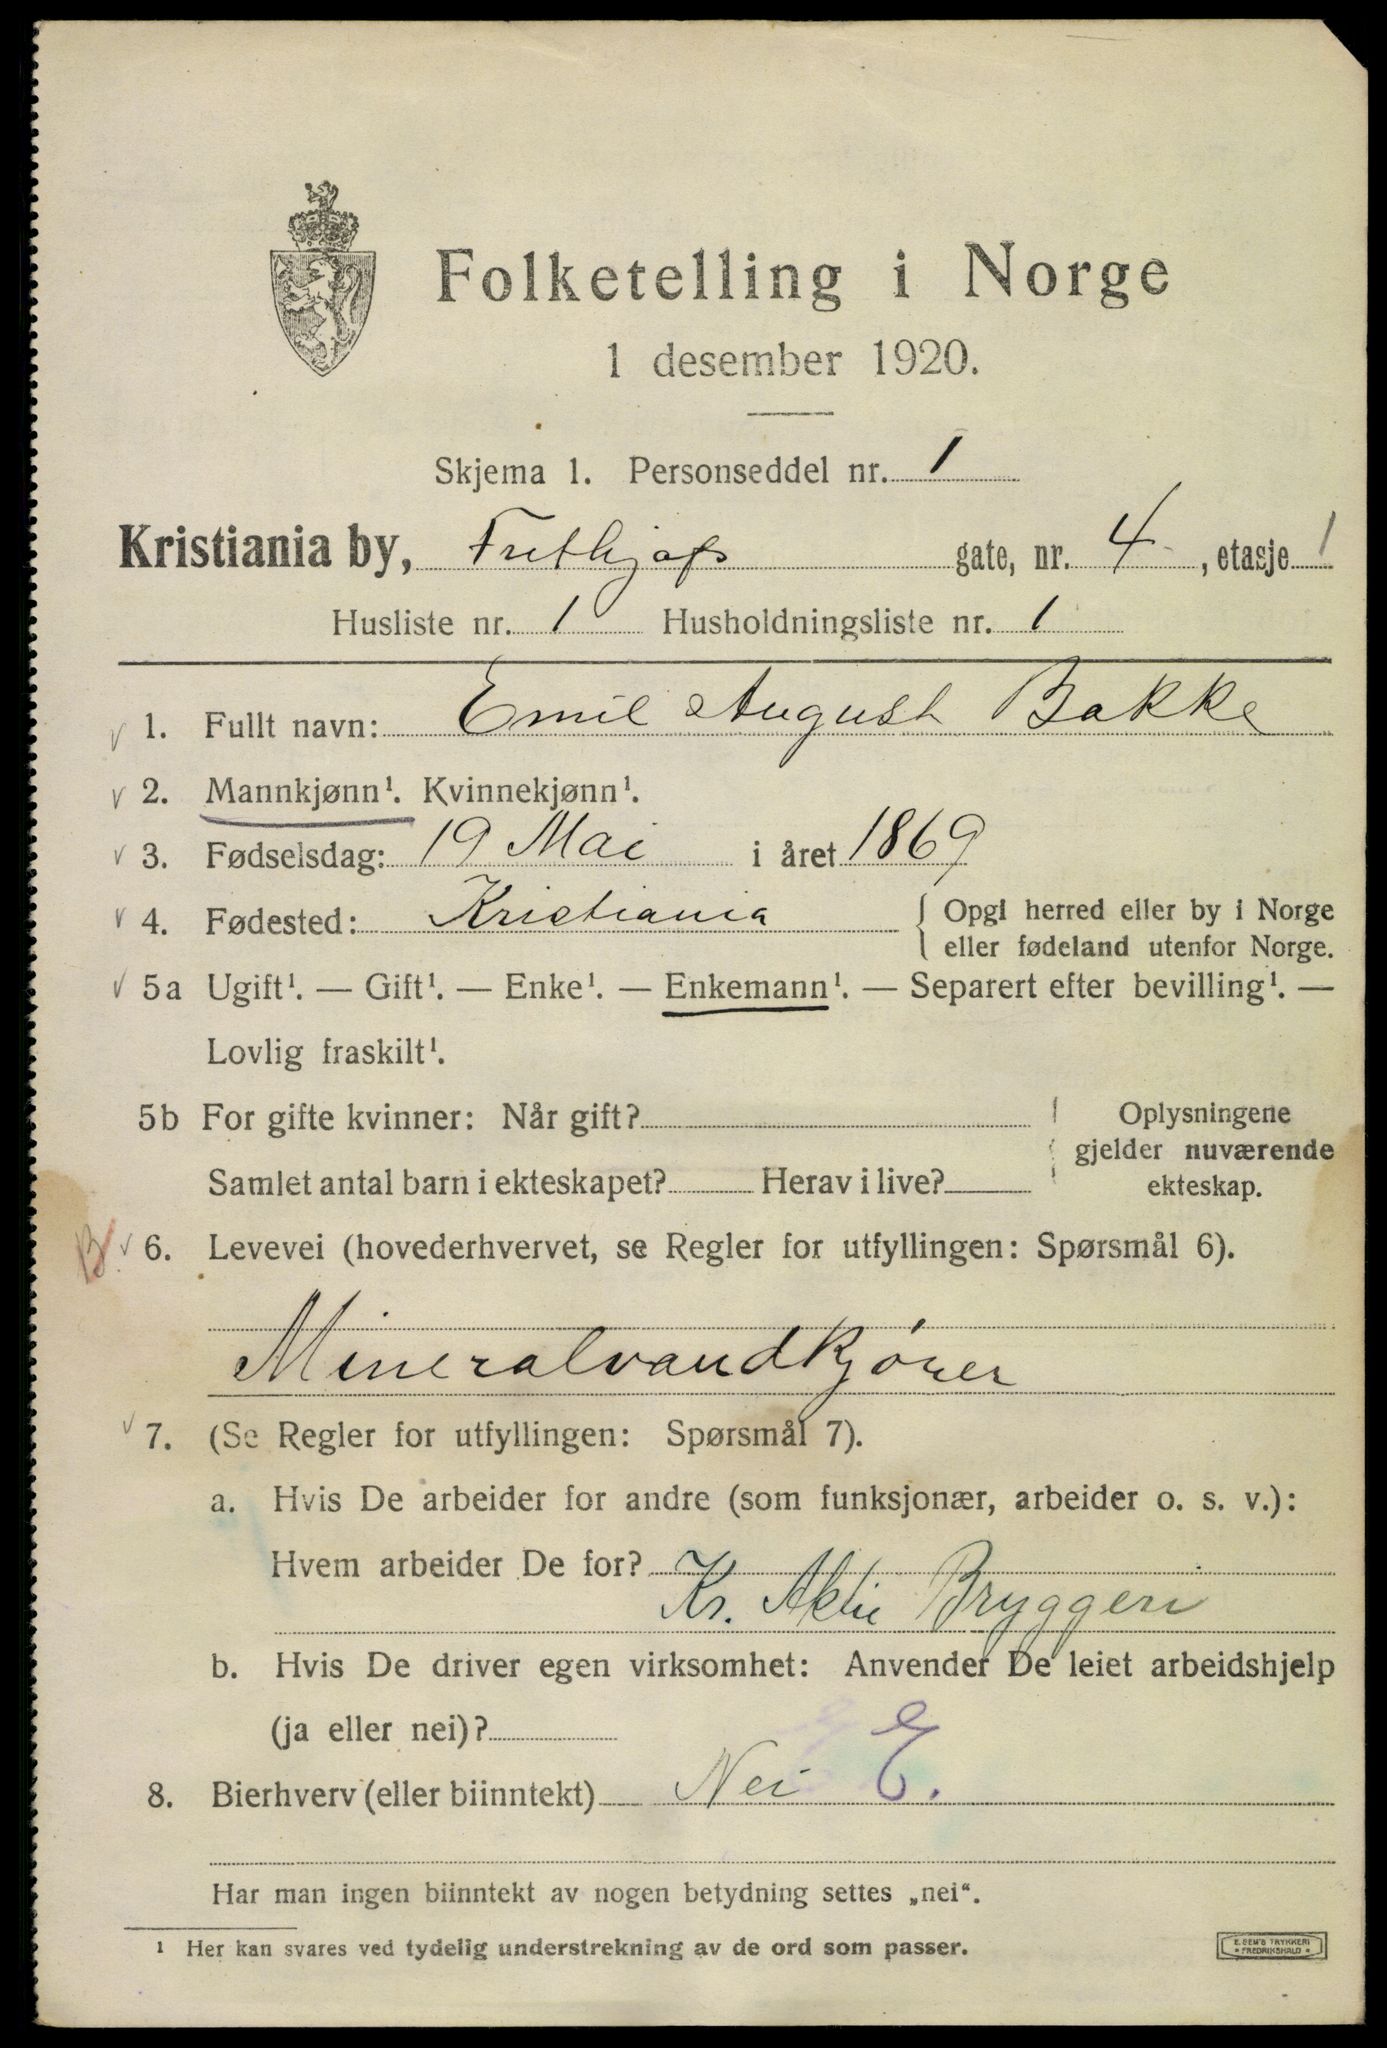 Folketelling i Norge
1 desember 1920.
Skjema 1. Personseddel nr. 1
Kristiania by, Frithjofs gate, nr. 4, etasje 1
Husliste nr. 1 Husholdningsliste nr. 1
1. Fullt navn: Emil August Bakke
2. Mannkjønn¹. Kvinnekjønn¹.
3. Fødselsdag: 19 Mai i året 1869
4. Fødested: Kristiania { Opgi herred eller by i Norge
eller fødeland utenfor Norge.
5a Ugift¹. — Gift¹. — Enke¹. — Enkemann¹. — Separert efter bevilling¹. —
Lovlig fraskilt¹.
5b For gifte kvinner: Når gift? Oplysningene
gjelder nuværende
Samlet antal barn i ekteskapet? Herav i live? ekteskap.
B. 6. Levevei (hovederhvervet, se Regler for utfyllingen: Spørsmål 6).
Mineralvandkjörer
7. (Se Regler for utfyllingen: Spørsmål 7).
a. Hvis De arbeider for andre (som funksjonær, arbeider o. s. v.):
Hvem arbeider De for?
Kr. Aktie Bryggeri
b. Hvis De driver egen virksomhet: Anvender De leiet arbeidshjelp
(ja eller nei)?
8. Bierhverv (eller biinntekt) Nei E.
Har man ingen biinntekt av nogen betydning settes „nei“.
¹ Her kan svares ved tydelig understrekning av de ord som passer.
E. SEM'S TRYKKERI
* FREDRIKSHALD *